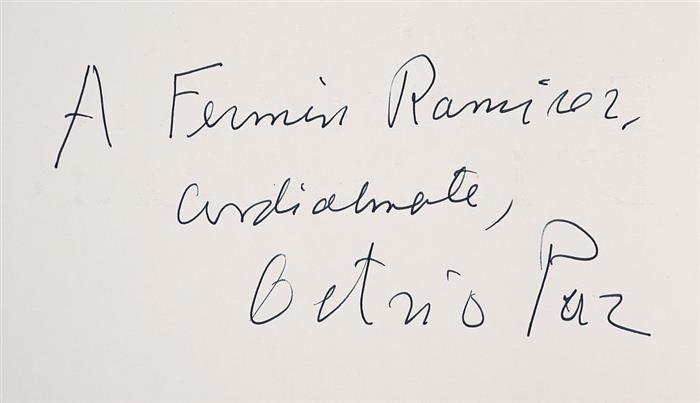 A Fermín Ramírez,
cordialmente,
Octavio Paz